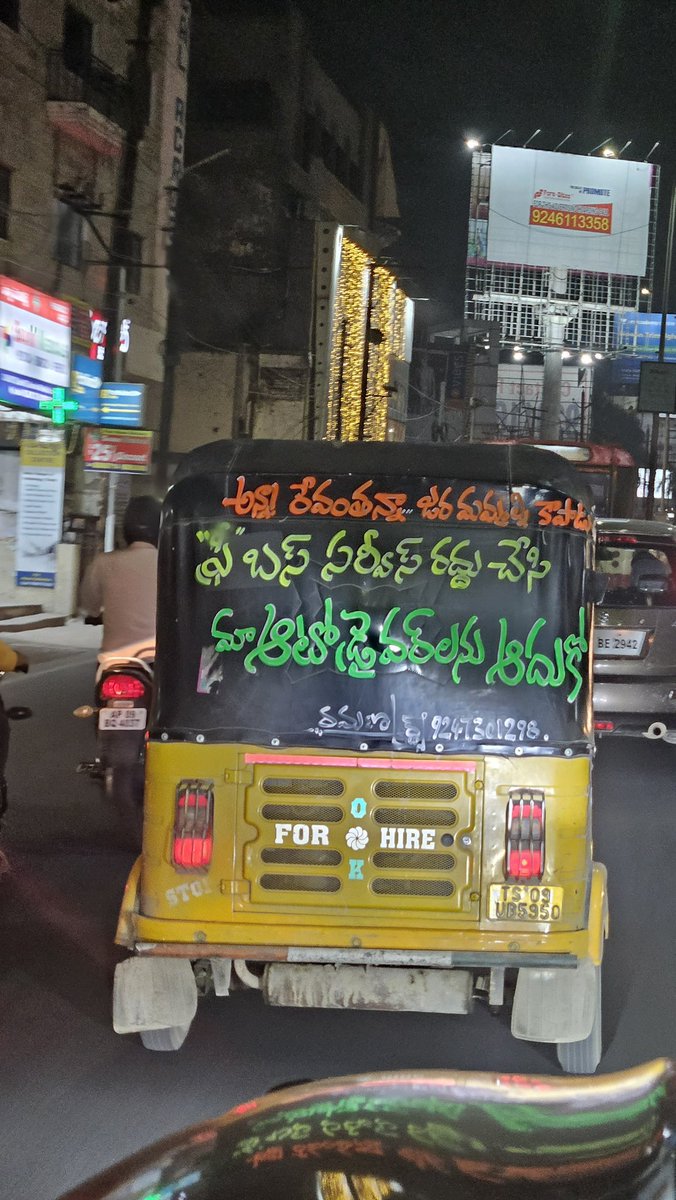 9246113358
అన్నా! రేవంతన్నా.. జర మమ్మల్ని కాపాడు
"ఫ్రీ" బస్ సర్వీస్ రద్దు చేసి
మా ఆటో డ్రైవర్‌లను ఆదుకో
9247301298.
BE 2942
AP 09
FOR HIRE
O
K
TS 09
UB5950